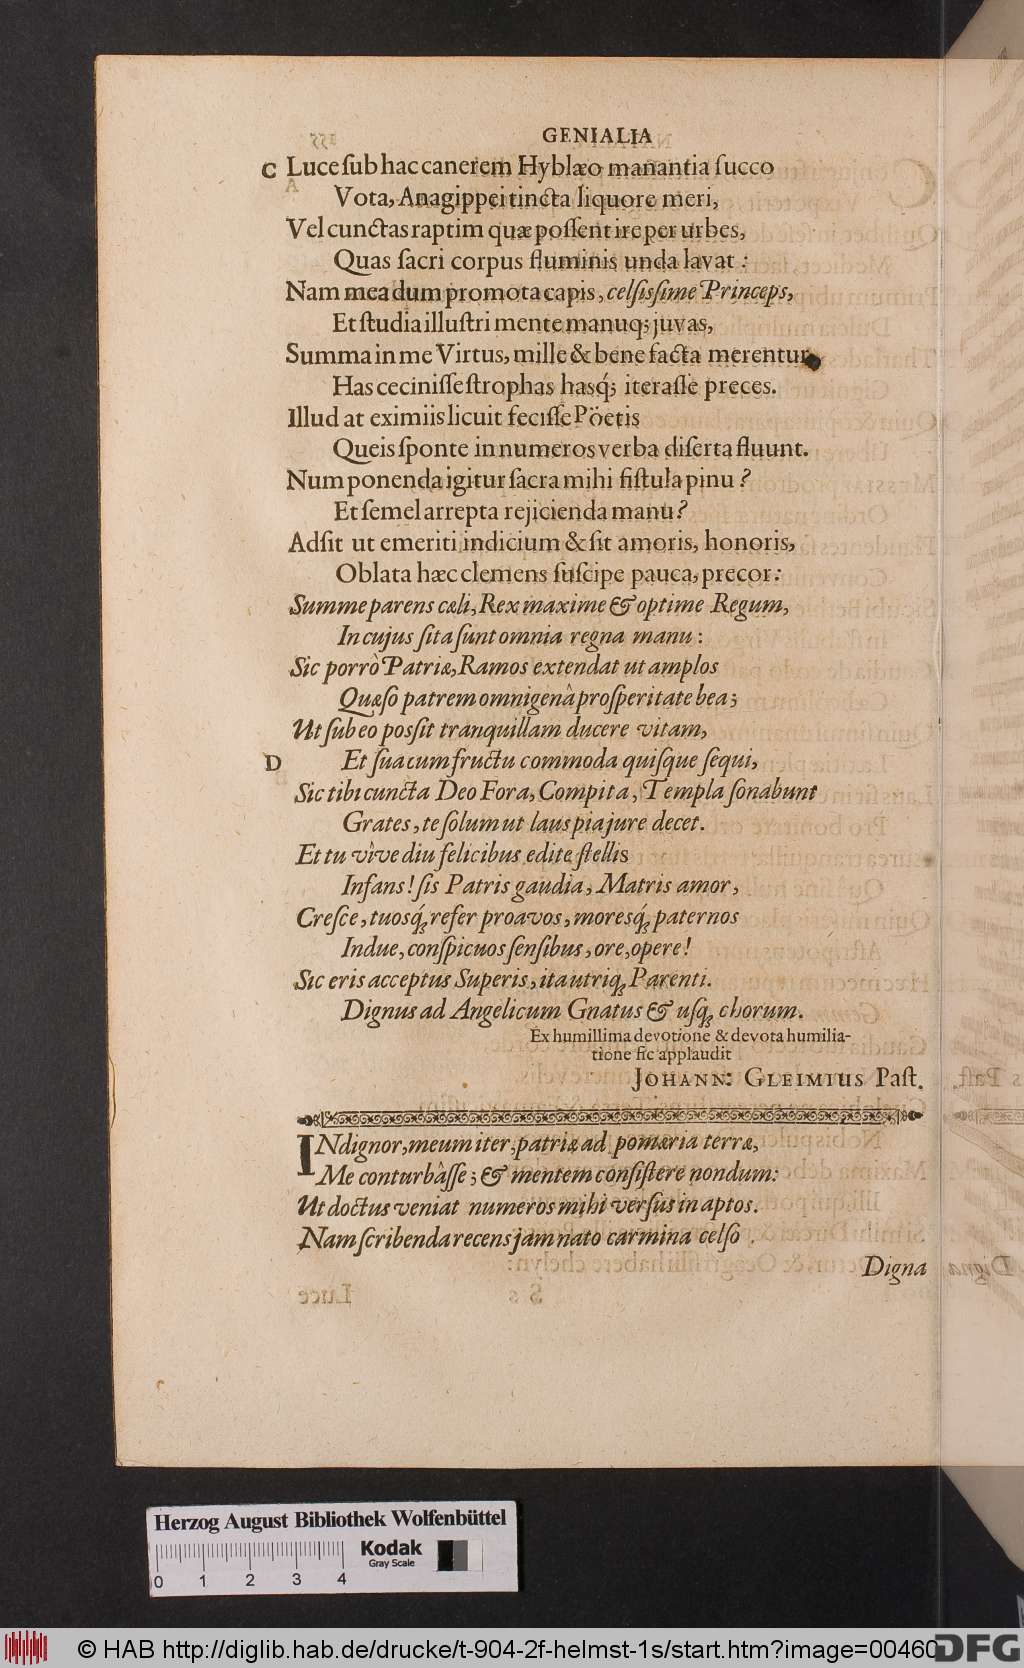 GENIALIA
C Luce ſub hac canerem Hyblæo manantia ſucco
Vota, Anagippei tincta liquore meri,
Vel cunctas raptim quæ poſſent ire per urbes,
Quas ſacri corpus fluminis unda lavat:
Nam mea dum promota capis, celſisſime Princeps,
Et ſtudia illuſtri mente manuq; juvas,
Summa in me Virtus, mille & bene facta merentur
Has ceciniſſe ſtrophas hasq́; iteraſſe preces.
Illud at eximiis licuit feciſſe Pöetis
Queis ſponte in numeros verba diſerta fluunt.
Num ponenda igitur ſacra mihi fiſtula pinu?
Et ſemel arrepta rejicienda manu?
Adſit ut emeriti indicium & ſit amoris, honoris,
Oblata hæc clemens ſuſcipe pauca, precor:
Summe parens cæli, Rex maxime & optime Regum,
In cujus ſita ſunt omnia regna manu:
Sic porrò Patriæ, Ramos extendat ut amplos
Quæſo patrem omnigenâ proſperitate bea;
Ut ſub eo posſit tranquillam ducere vitam,
D Et ſua cum fructu commoda quiſque ſequi,
Sic tibi cuncta Deo Fora, Compita, Templa ſonabunt
Grates, te ſolum ut laus pia jure decet.
Et tu vìve diu felicibus edite ſtellis
Infans! ſis Patris gaudia, Matris amor,
Creſce, tuosq́; refer proavos, moresq́; paternos
Indue, conſpicuos ſenſibus, ore, opere!
Sic eris acceptus Superis, ita utriq; Parenti.
Dignus ad Angelicum Gnatus & uſq; chorum.
Ex humillima devotione & devota humilia-
tione ſic applaudit
JOHANN: GLEIMIUS Paſt.
INdignor, meum iter, patriæ ad pomæria terræ,
Me conturbâſſe; & mentem conſiſtere nondum:
Ut doctus veniat numeros mihi verſus in aptos.
Nam ſcribenda recens jam nato carmina celſo
Digna
Herzog August Bibliothek Wolfenbüttel
Kodak
Gray Scale
0 1 2 3 4
© HAB http://diglib.hab.de/drucke/t-904-2f-helmst-1s/start.htm?image=00460
DFG